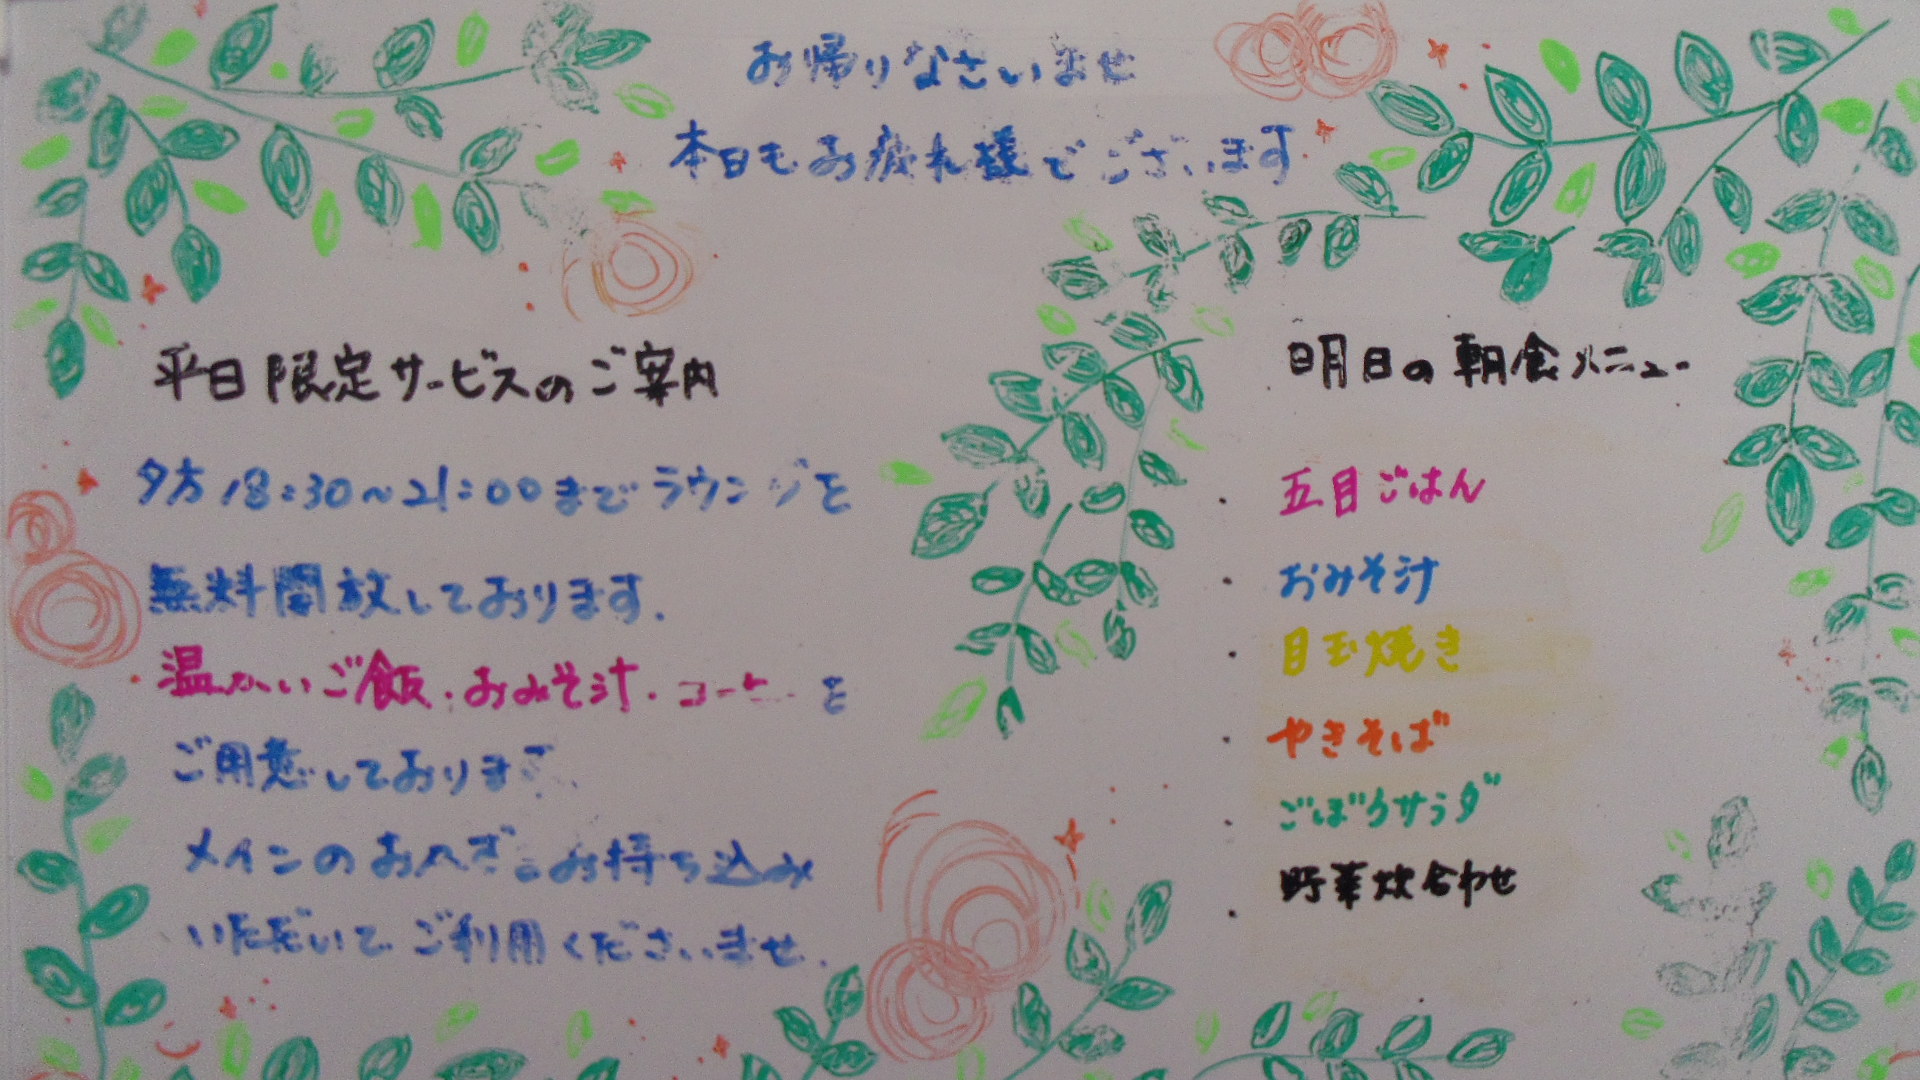 お帰りなさいませ
本日もお疲れ様でございます
平日限定サービスのご案内
夕方18:30〜21:00までラウンジを
無料開放しております.
温かいご飯・おみそ汁・コーヒーを
ご用意しております.
メインのおかずをお持ち込み
いただいて ご利用くださいませ.
明日の朝食メニュー
・五目ごはん
・おみそ汁
・目玉焼き
・やきそば
・ごぼうサラダ
・野菜炊合わせ